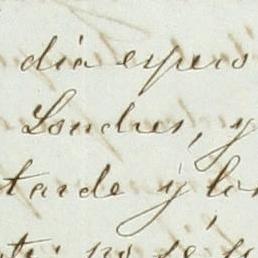 dia espero
Londres, y
tarde y los
no sé